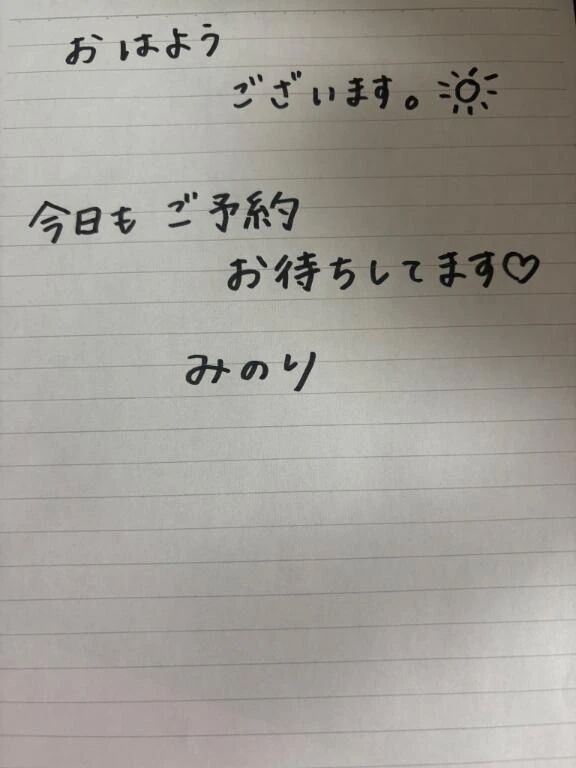 おはよう
ございます。☀
今日も ご予約
お待ちしてます♡
みのり